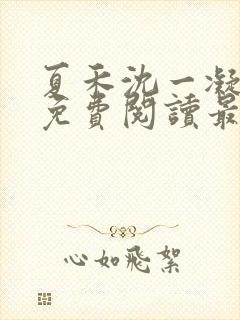 夏禾沈一凝
免費閱讀最
心如飛絮